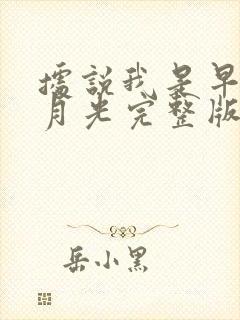 據説我是早
月光完整版
岳小黑